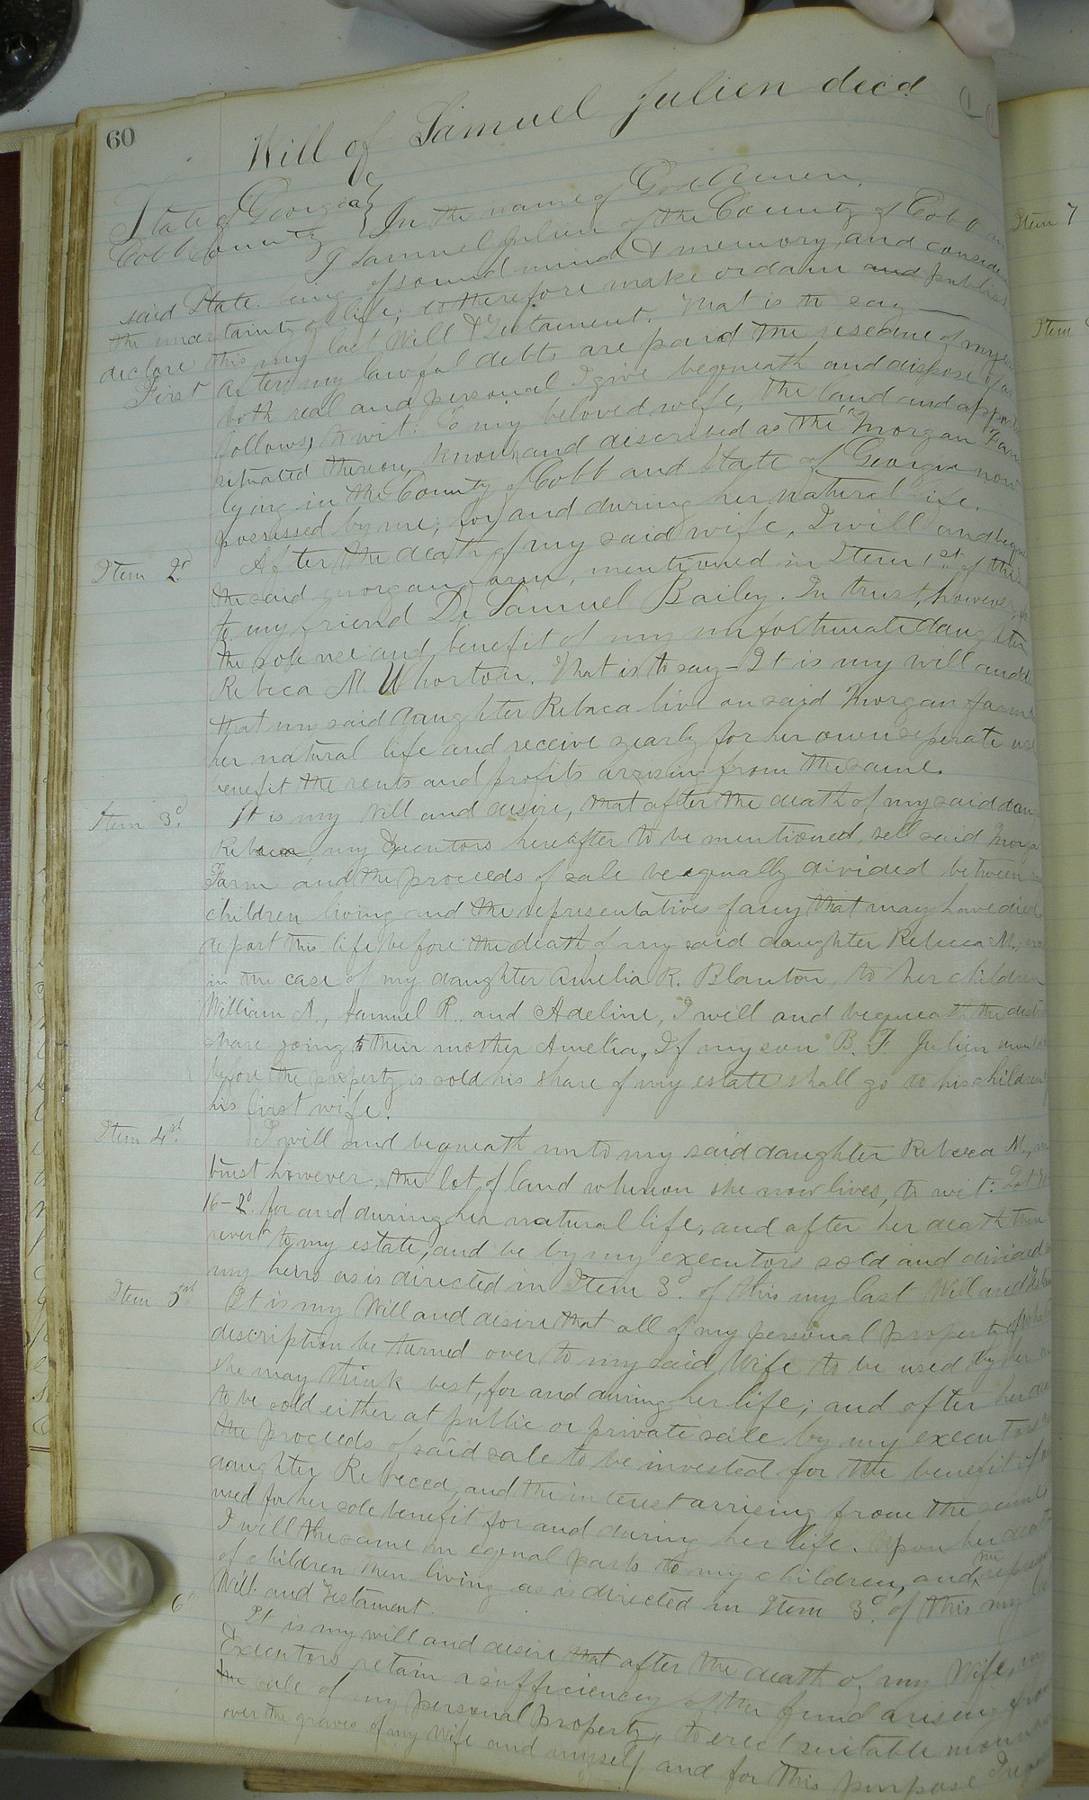 60
Will of Samuel Julien decd
State of Georgia
Cobb County } In the name of God Amen.
I Samuel Julien of the County of Cobb and
said State being of sound mind & memory and conside
the uncertainty of life, do therefore make ordain and publish
declare this my last Will & Testament. That is to say
First After my lawful debts are paid the rescidue of my
both real and personal I give bequeath and dispose of as
follows, to wit: To my beloved wife, the land and
situated thereon, known and discribed as the "Morgan Farm
lying in the County of Cobb and State of Georgia now
possessed by me, for and during her natural life.
Item 2d After the death of my said wife, I will and beque
the said morgan farm, mentioned in Item 1st of this
to my friend Dr Samuel Bailey. In trust, however, for
the sole use and benefit of my unfortunate daughter
Rebeca M. Whorton. That is to say - It is my will and de
that my said daughter Rebeca live on said Morgan farm
her natural life and receive yearly for her own seperate use
benefit the rents and profits arising from the same.
Item 3d. It is my Will and desire, that after the death of my said dau
Rebeca, my Executors hereafter to be mentioned, sell said Morga
Farm and the proceeds of sale be equally divided between
children living and the representatives of any that may have died
depart this life before the death of my said daughter Rebeca M.,
in the case of my daughter Amelia R. Blanton, to her children
William A., Samuel R. and Adeline, I will and bequeath the dist
share going to their mother Amelia, If my son B. F. Julien
before the property is sold his share of my estate shall go to his children
his first wife.
Item 4st. I will and bequeath unto my said daughter Rebeca M.,
trust however, the lot of land whereon she now lives, to wit: Lot
16-2d. for and during her natural life, and after her death then
revert to my estate, and be by my executors sold and divided
my heirs as is directed in Item 3d. of this my last Will and
Item 5st It is my Will and desire that all of my personal property of
discription be turned over to my said Wife to be used by her
she may think best, for and during her life; and after her
to be sold either at public or private sale by my executors
the proceeds of said sale to be invested for the benefit of
daughter Rebeca, and the interest arriseing from the same
used for her sole benefit for and during her life. Upon her death
I will the same in equal parts to my children, and the
of children then living as is directed in Item 3d. of this my
Will and Testament.
6 It is my will and desire that after the death of my Wife,
Executors retain a sufficiency of the fund arising from
the sale of my personal property, to erect suitable
over the graves of my Wife and myself and for this purpose I
Item 7
Item